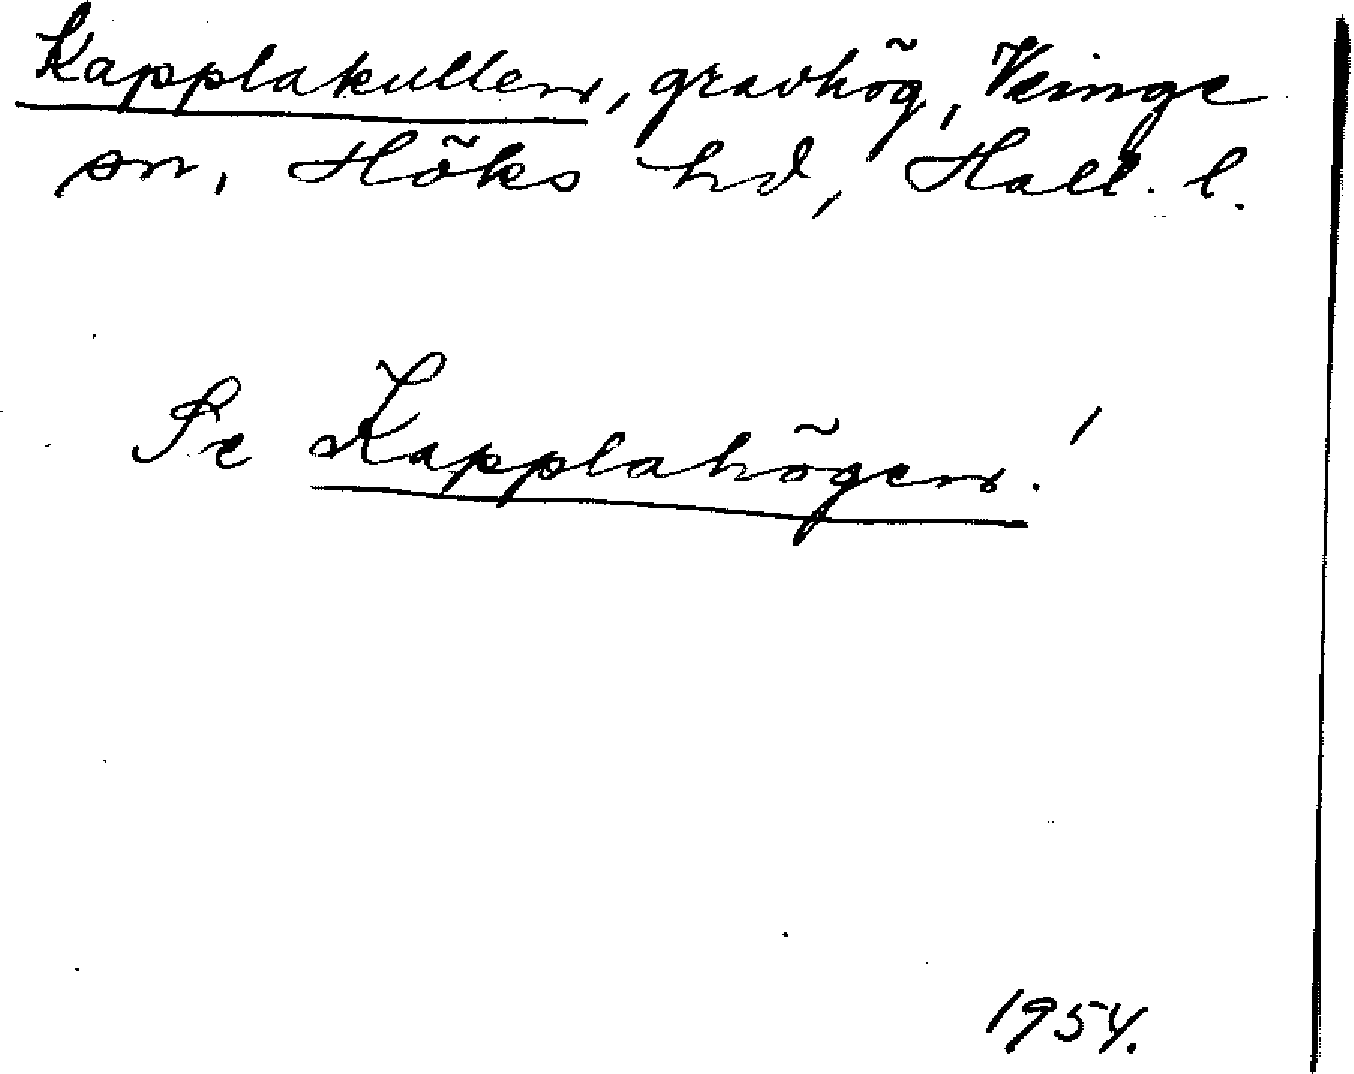 Kapplakullen, gravhög, Veinge
sn, Höks hd, Hall. l.
Se Kapplahögen!
1954.